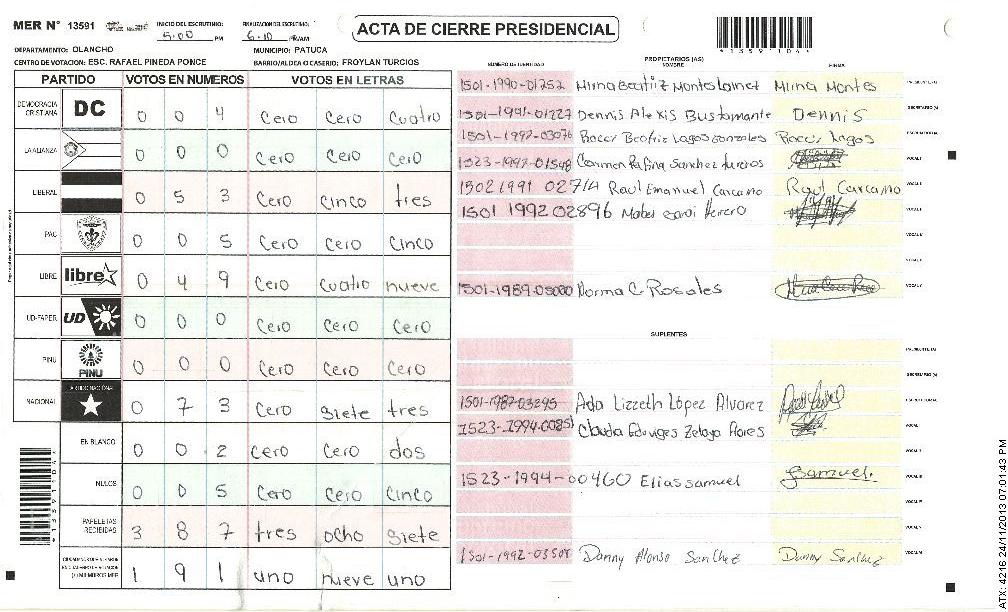 MER N° 13591 INICIO DEL ESCRUTINIO: 5:00 PM FINALIZACION DEL ESCRUTINIO: 6:10 PM/AM ACTA DE CIERRE PRESIDENCIAL
*13591104*
DEPARTAMENTO: OLANCHO MUNICIPIO: PATUCA
CENTRO DE VOTACION: ESC. RAFAEL PINEDA PONCE BARRIO/ALDEA O CASERIO: FROYLAN TURCIOS
PARTIDO VOTOS EN NUMEROS VOTOS EN LETRAS
DEMOCRACIA CRISTIANA DC 0 0 4 Cero Cero Cuatro
LA ALIANZA 0 0 0 Cero Cero Cero
LIBERAL 0 5 3 Cero Cinco tres
PAC 0 0 5 Cero Cero Cinco
LIBRE libre 0 4 9 Cero Cuatro nueve
UD-FAPER UD 0 0 0 Cero Cero Cero
PINU PINU 0 0 0 Cero Cero Cero
NACIONAL PARTIDO NACIONAL 0 7 3 Cero siete tres
EN BLANCO 0 0 2 Cero Cero dos
NULOS 0 0 5 Cero Cero Cinco
PAPELETAS RECIBIDAS 3 8 7 tres ocho siete
1 9 1 uno nueve uno
PROPIETARIOS (AS)
NUMERO DE IDENTIDAD NOMBRE FIRMA
1501-1990-01252 Mirna Beatriz Montes Mirna Montes PRESIDENTE (A)
1501-1991-01227 Dennis Alexis Bustamante Dennis SECRETARIO (A)
1501-1992-03076 Beatriz Lagos Gonzales Lagos ESCRUTADOR (A)
1523-1992-01548 Carmen Sanchez VOCAL I
1502 1991 Raul Emanuel Carcamo Raul Carcamo VOCAL II
1501 1992 02896 Herrero
1501-1989-05000 Norma C. Rosales VOCAL V
SUPLENTES
PRESIDENTE (A)
SECRETARIO (A)
1501-1987-03295 Ada Lizzeth López Alvarez
1523-1994-00851 Claudia Eduviges Zelaya Flores
1523-1994-00460 Elias samuel Samuel.
1501-1992-03508 Danny Alonso Sanchez Danny Sanchez
ATX: 4216 24/11/2013 07:01:43 PM